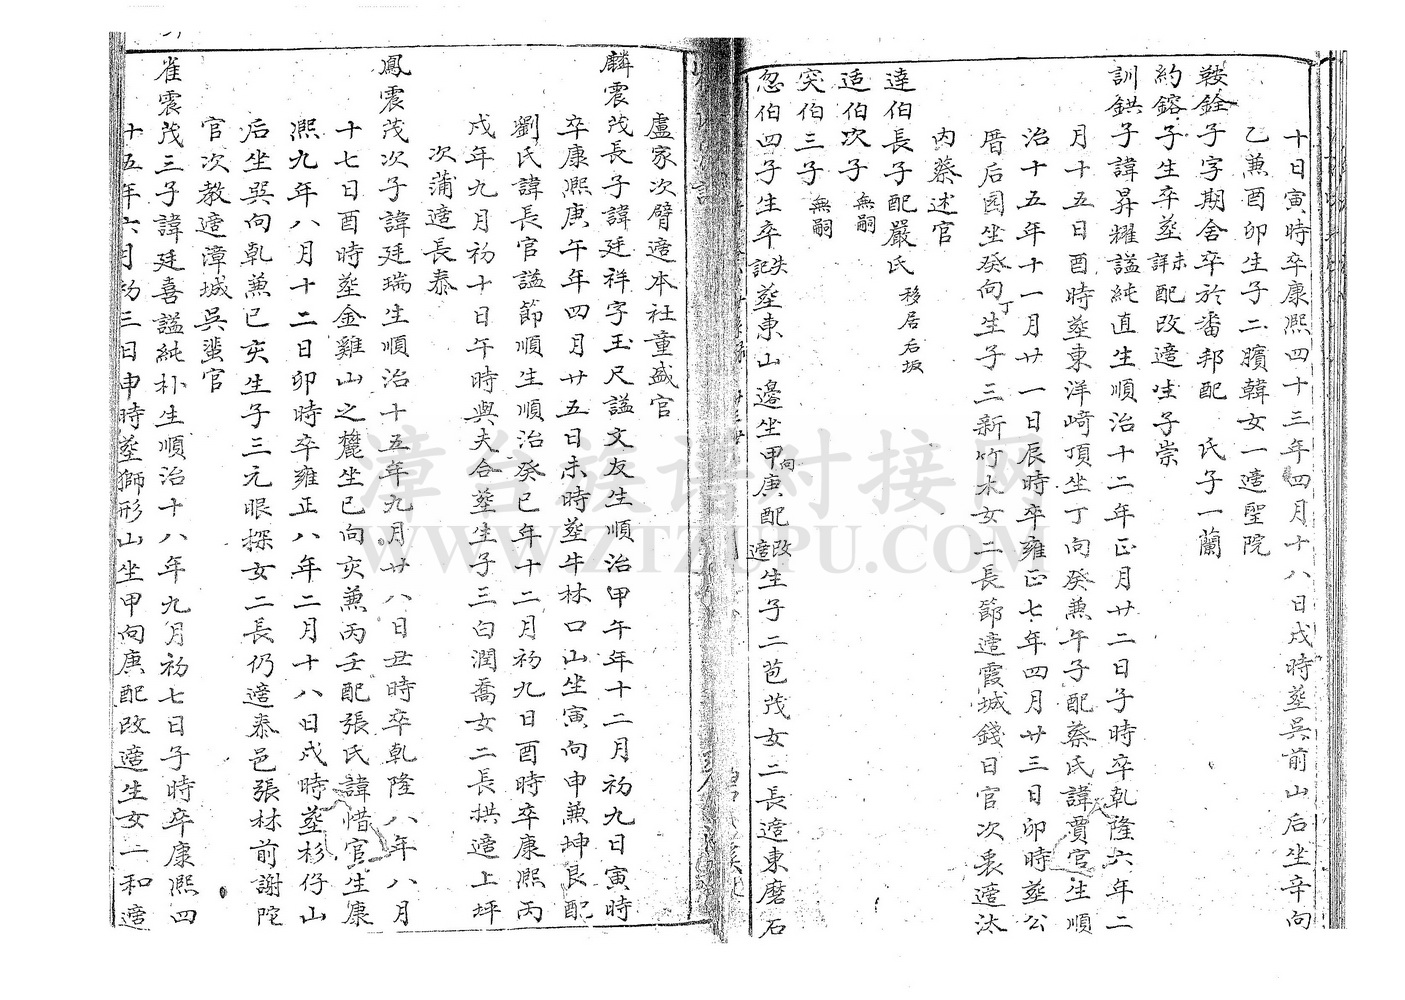 十日寅時卒康熙四十三年四月十八日戌時塟吳前山后坐辛向
乙兼酉卯生子二臏韓女一適聖院
鞍銓子字期舍卒於畨邦配　氏子一蘭
約鎔子生卒塟未詳配改適生子崇
訓鉷子諱昇耀謚純直生順治十二年正月廿二日子時卒乹隆六年二
月十五日酉時塟東洋崎頂坐丁向癸兼午子配蔡氏諱賈官生順
治十五年十一月廿一日辰時卒雍正七年四月廿三日卯時塟公
厝后园坐癸向丁生子三新竹木女二長節適霞城錢日官次裊適汰
內蔡述官
達伯長子配嚴氏 移居后坂
适伯次子 無嗣
突伯三子 無嗣
忽伯四子生卒失記塟東山邊坐甲向庚配改適生子二苞茂女二長適東磨石
盧家次臂適本社童盛官
麟震茂長子諱廷祥字玉尺謚文友生順治甲午年十二月初九日寅時
卒康熙庚午年四月廿五日未時塟牛林口山坐寅向申兼坤艮配
劉氏諱長官謚節順生順治癸巳年十二月初九日酉時卒康熙丙
戌年九月初十日午時與夫合塟生子三白潤喬女二長拱適上坪
次蒲適長泰
鳳震茂次子諱廷瑞生順治十五年九月廿八日丑時卒乹隆八年八月
十七日酉時塟金雞山之麓坐巳向亥兼丙壬配張氏諱惜官生康
熙九年八月十二日卯時卒雍正八年二月十八日戌時塟杉仔山
后坐巽向乹兼巳亥生子三元眼探女二長仍適泰邑張林前謝陀
官次教適漳城吳蜚官
雀震茂三子諱廷喜謚純朴生順治十八年九月初七日子時卒康熙四
十五年六月初三日申時塟獅形山坐甲向庚配改適生女一和適
漳台族谱对接网
WWW.ZTZUPU.COM